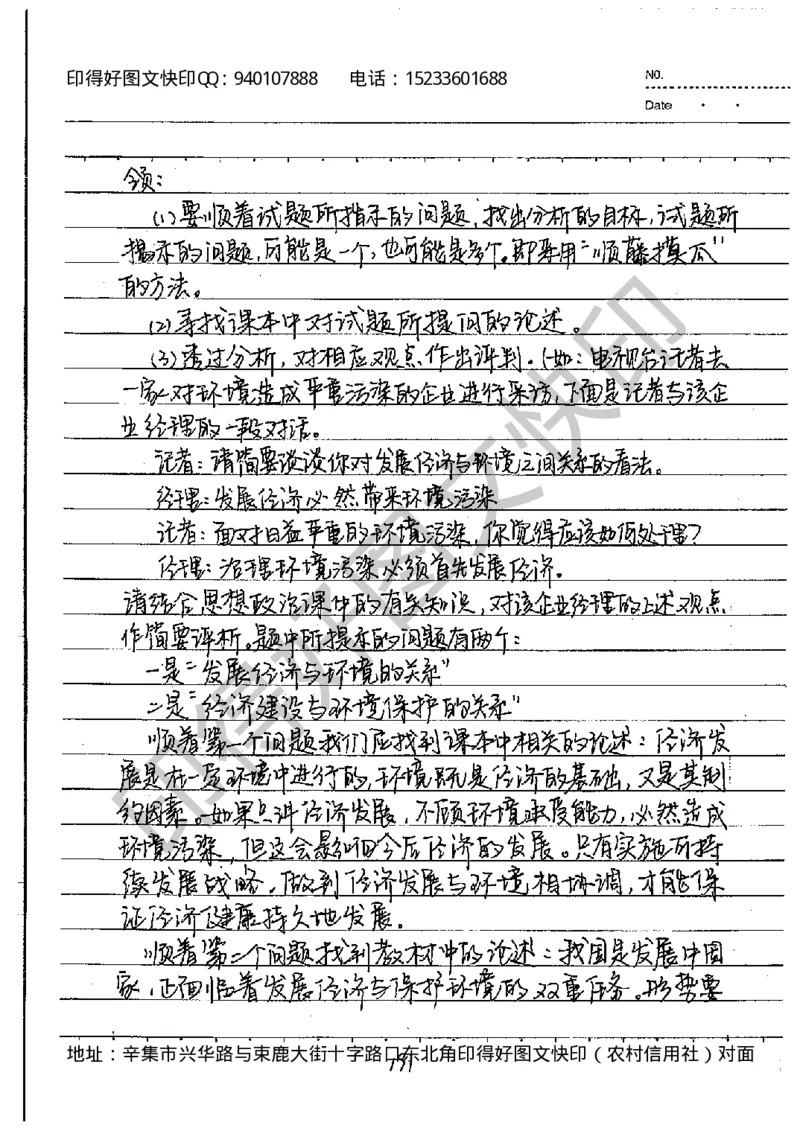 印得好图文快印QQ：940107888 电话：15233601688
No.
Date
领：
(1)要顺着试题所指示的问题，找出分析的目标，试题所
揭示的问题，可能是一个，也可能是多个。即采用“顺藤摸瓜”
的方法。
(2)寻找课本中对试题所提问的论述。
(3)透过分析，对相应观点作出评判。(如：电视台记者去
一家对环境造成严重污染的企业进行采访，下面是记者与该企
业经理的一段对话。
记者：请简要谈谈你对发展经济与环境之间关系的看法。
经理：发展经济必然带来环境污染
记者：面对日益严重的环境污染，你觉得应该如何处理？
经理：治理环境污染必须首先发展经济。
请结合思想政治课中的有关知识，对该企业经理的上述观点
作简要评析。题中所提示的问题有两个：
一是“发展经济与环境的关系”
二是“经济建设与环境保护的关系”
顺着第一个问题我们应找到课本中相关的论述：经济发
展是在一定环境中进行的，环境既是经济的基础，又是其制
约因素。如果只讲经济发展，不顾环境承受能力，必然造成
环境污染，但这会影响今后经济的发展。只有实施可持
续发展战略，做到经济发展与环境相协调，才能保
证经济健康持久地发展。
顺着第二个问题找到教材中的论述：我国是发展中国
家，正面临着发展经济与保护环境的双重任务。形势要
地址：辛集市兴华路与束鹿大街十字路口东北角印得好图文快印（农村信用社）对面
印得好图文快印